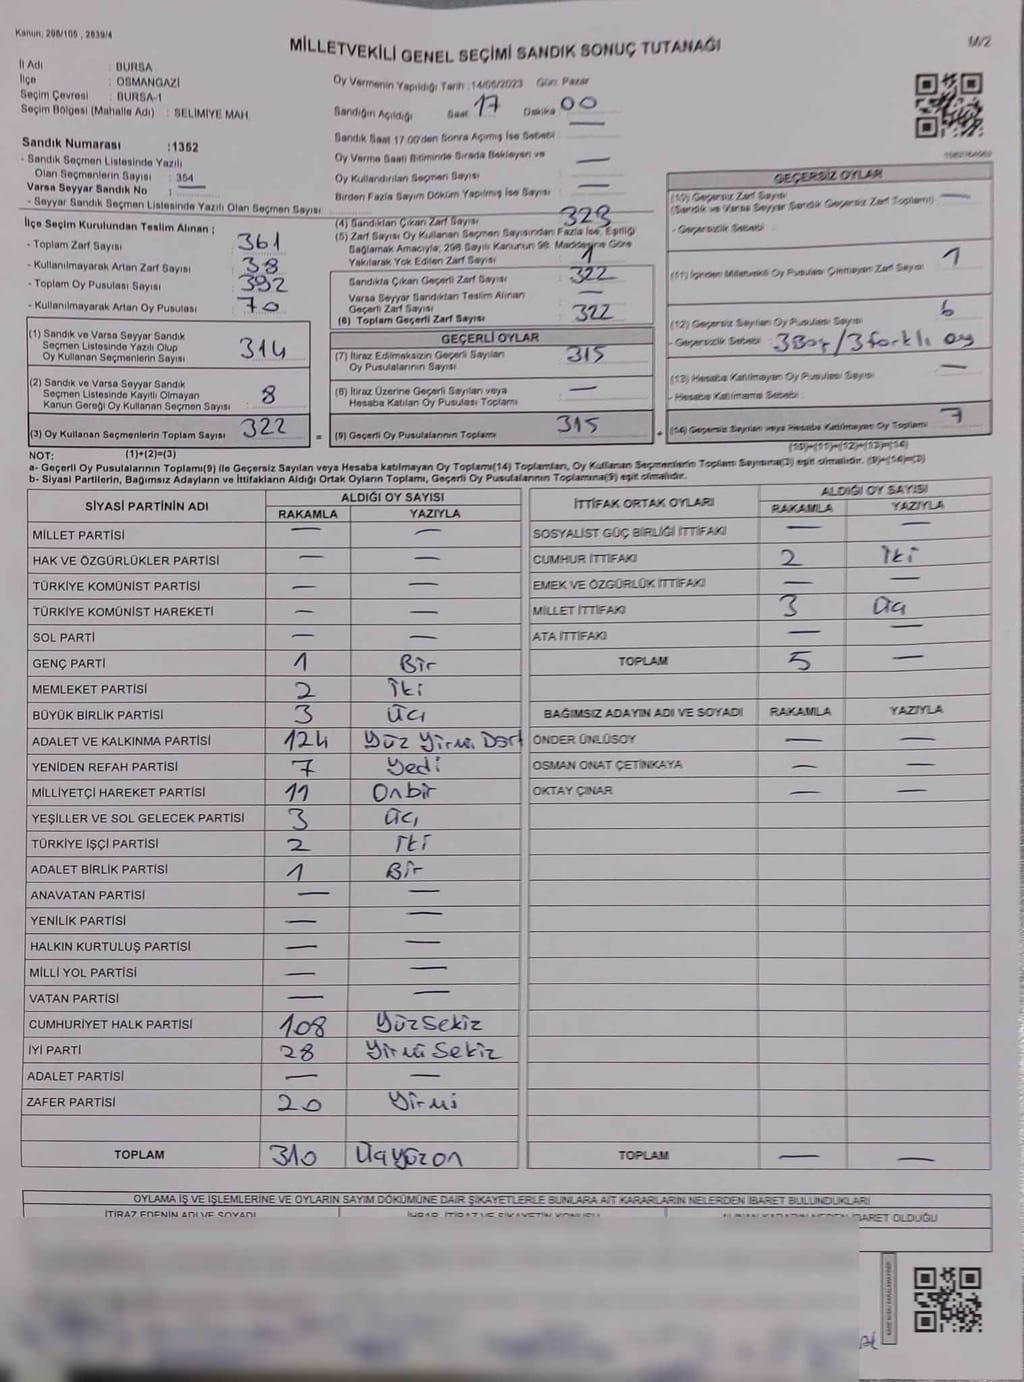 Kanun, 298/105 , 2839/4
MİLLETVEKİLİ GENEL SEÇİMİ SANDIK SONUÇ TUTANAĞI
M/2
İl Adı : BURSA
İlçe : OSMANGAZİ
Seçim Çevresi : BURSA-1
Seçim Bölgesi (Mahalle Adı) : SELİMİYE MAH.
Sandık Numarası :1352
- Sandık Seçmen Listesinde Yazılı
Olan Seçmenlerin Sayısı : 354
Varsa Seyyar Sandık No : —
- Seyyar Sandık Seçmen Listesinde Yazılı Olan Seçmen Sayısı
İlçe Seçim Kurulundan Teslim Alınan ;
- Toplam Zarf Sayısı : 361
- Kullanılmayarak Artan Zarf Sayısı : 38
- Toplam Oy Pusulası Sayısı : 392
- Kullanılmayarak Artan Oy Pusulası : 70
(1) Sandık ve Varsa Seyyar Sandık
Seçmen Listesinde Yazılı Olup
Oy Kullanan Seçmenlerin Sayısı : 314
(2) Sandık ve Varsa Seyyar Sandık
Seçmen Listesinde Kayıtlı Olmayan
Kanun Gereği Oy Kullanan Seçmen Sayısı : 8
(3) Oy Kullanan Seçmenlerin Toplam Sayısı : 322
Oy Vermenin Yapıldığı Tarih :14/05/2023 Gün: Pazar
Sandığın Açıldığı Saat 17 Dakika 00
Sandık Saat 17:00'den Sonra Açılmış İse Sebebi : —
Oy Verme Saati Bitiminde Sırada Bekleyen ve
Oy Kullandırılan Seçmen Sayısı : —
Birden Fazla Sayım Döküm Yapılmış İse Sayısı : —
(4) Sandıktan Çıkan Zarf Sayısı : 323
(5) Zarf Sayısı Oy Kullanan Seçmen Sayısından Fazla İse, Eşitliği
Sağlamak Amacıyla; 298 Sayılı Kanunun 98. Maddesine Göre
Yakılarak Yok Edilen Zarf Sayısı : 1
Sandıkta Çıkan Geçerli Zarf Sayısı : 322
Varsa Seyyar Sandıktan Teslim Alınan
Geçerli Zarf Sayısı : —
(6) Toplam Geçerli Zarf Sayısı : 322
GEÇERLİ OYLAR
(7) İtiraz Edilmeksizin Geçerli Sayılan
Oy Pusulalarının Sayısı : 315
(8) İtiraz Üzerine Geçerli Sayılan veya
Hesaba Katılan Oy Pusulası Toplamı : —
= (9) Geçerli Oy Pusulalarının Toplamı : 315
GEÇERSİZ OYLAR
(10) Geçersiz Zarf Sayısı
(Sandık ve Varsa Seyyar Sandık Geçersiz Zarf Toplamı) : —
- Geçersizlik Sebebi :
(11) İçinden Milletvekili Oy Pusulası Çıkmayan Zarf Sayısı : 1
(12) Geçersiz Sayılan Oy Pusulası Sayısı : 6
- Geçersizlik Sebebi : 3 Boş / 3 farklı oy
(13) Hesaba Katılmayan Oy Pusulası Sayısı : —
- Hesaba Katılmama Sebebi :
+ (14) Geçersiz Sayılan veya Hesaba Katılmayan Oy Toplamı : 7
NOT: (1)+(2)=(3)
(10)+(11)+(12)+(13)=(14)
a- Geçerli Oy Pusulalarının Toplamı(9) ile Geçersiz Sayılan veya Hesaba katılmayan Oy Toplamı(14) Toplamları, Oy Kullanan Seçmenlerin Toplam Sayısına(3) eşit olmalıdır. (9)+(14)=(3)
b- Siyasi Partilerin, Bağımsız Adayların ve İttifakların Aldığı Ortak Oyların Toplamı, Geçerli Oy Pusulalarının Toplamına(9) eşit olmalıdır.
SİYASİ PARTİNİN ADI ALDIĞI OY SAYISI
RAKAMLA YAZIYLA
MİLLET PARTİSİ — —
HAK VE ÖZGÜRLÜKLER PARTİSİ — —
TÜRKİYE KOMÜNİST PARTİSİ — —
TÜRKİYE KOMÜNİST HAREKETİ — —
SOL PARTİ — —
GENÇ PARTİ 1 Bir
MEMLEKET PARTİSİ 2 İki
BÜYÜK BİRLİK PARTİSİ 3 Üç
ADALET VE KALKINMA PARTİSİ 124 Yüz Yirmi Dört
YENİDEN REFAH PARTİSİ 7 Yedi
MİLLİYETÇİ HAREKET PARTİSİ 11 Onbir
YEŞİLLER VE SOL GELECEK PARTİSİ 3 Üç
TÜRKİYE İŞÇİ PARTİSİ 2 İki
ADALET BİRLİK PARTİSİ 1 Bir
ANAVATAN PARTİSİ — —
YENİLİK PARTİSİ — —
HALKIN KURTULUŞ PARTİSİ — —
MİLLİ YOL PARTİSİ — —
VATAN PARTİSİ — —
CUMHURİYET HALK PARTİSİ 108 Yüzsekiz
İYİ PARTİ 28 Yirmi Sekiz
ADALET PARTİSİ — —
ZAFER PARTİSİ 20 Yirmi
TOPLAM 310 Üçyüzon
İTTİFAK ORTAK OYLARI ALDIĞI OY SAYISI
RAKAMLA YAZIYLA
SOSYALİST GÜÇ BİRLİĞİ İTTİFAKI — —
CUMHUR İTTİFAKI 2 İki
EMEK VE ÖZGÜRLÜK İTTİFAKI — —
MİLLET İTTİFAKI 3 Üç
ATA İTTİFAKI — —
TOPLAM 5 —
BAĞIMSIZ ADAYIN ADI VE SOYADI RAKAMLA YAZIYLA
ÖNDER ÜNLÜSOY — —
OSMAN ONAT ÇETİNKAYA — —
OKTAY ÇINAR — —
TOPLAM — —
OYLAMA İŞ VE İŞLEMLERİNE VE OYLARIN SAYIM DÖKÜMÜNE DAİR ŞİKAYETLERLE BUNLARA AİT KARARLARIN NELERDEN İBARET BULUNDUKLARI
İTİRAZ EDENİN ADI VE SOYADI